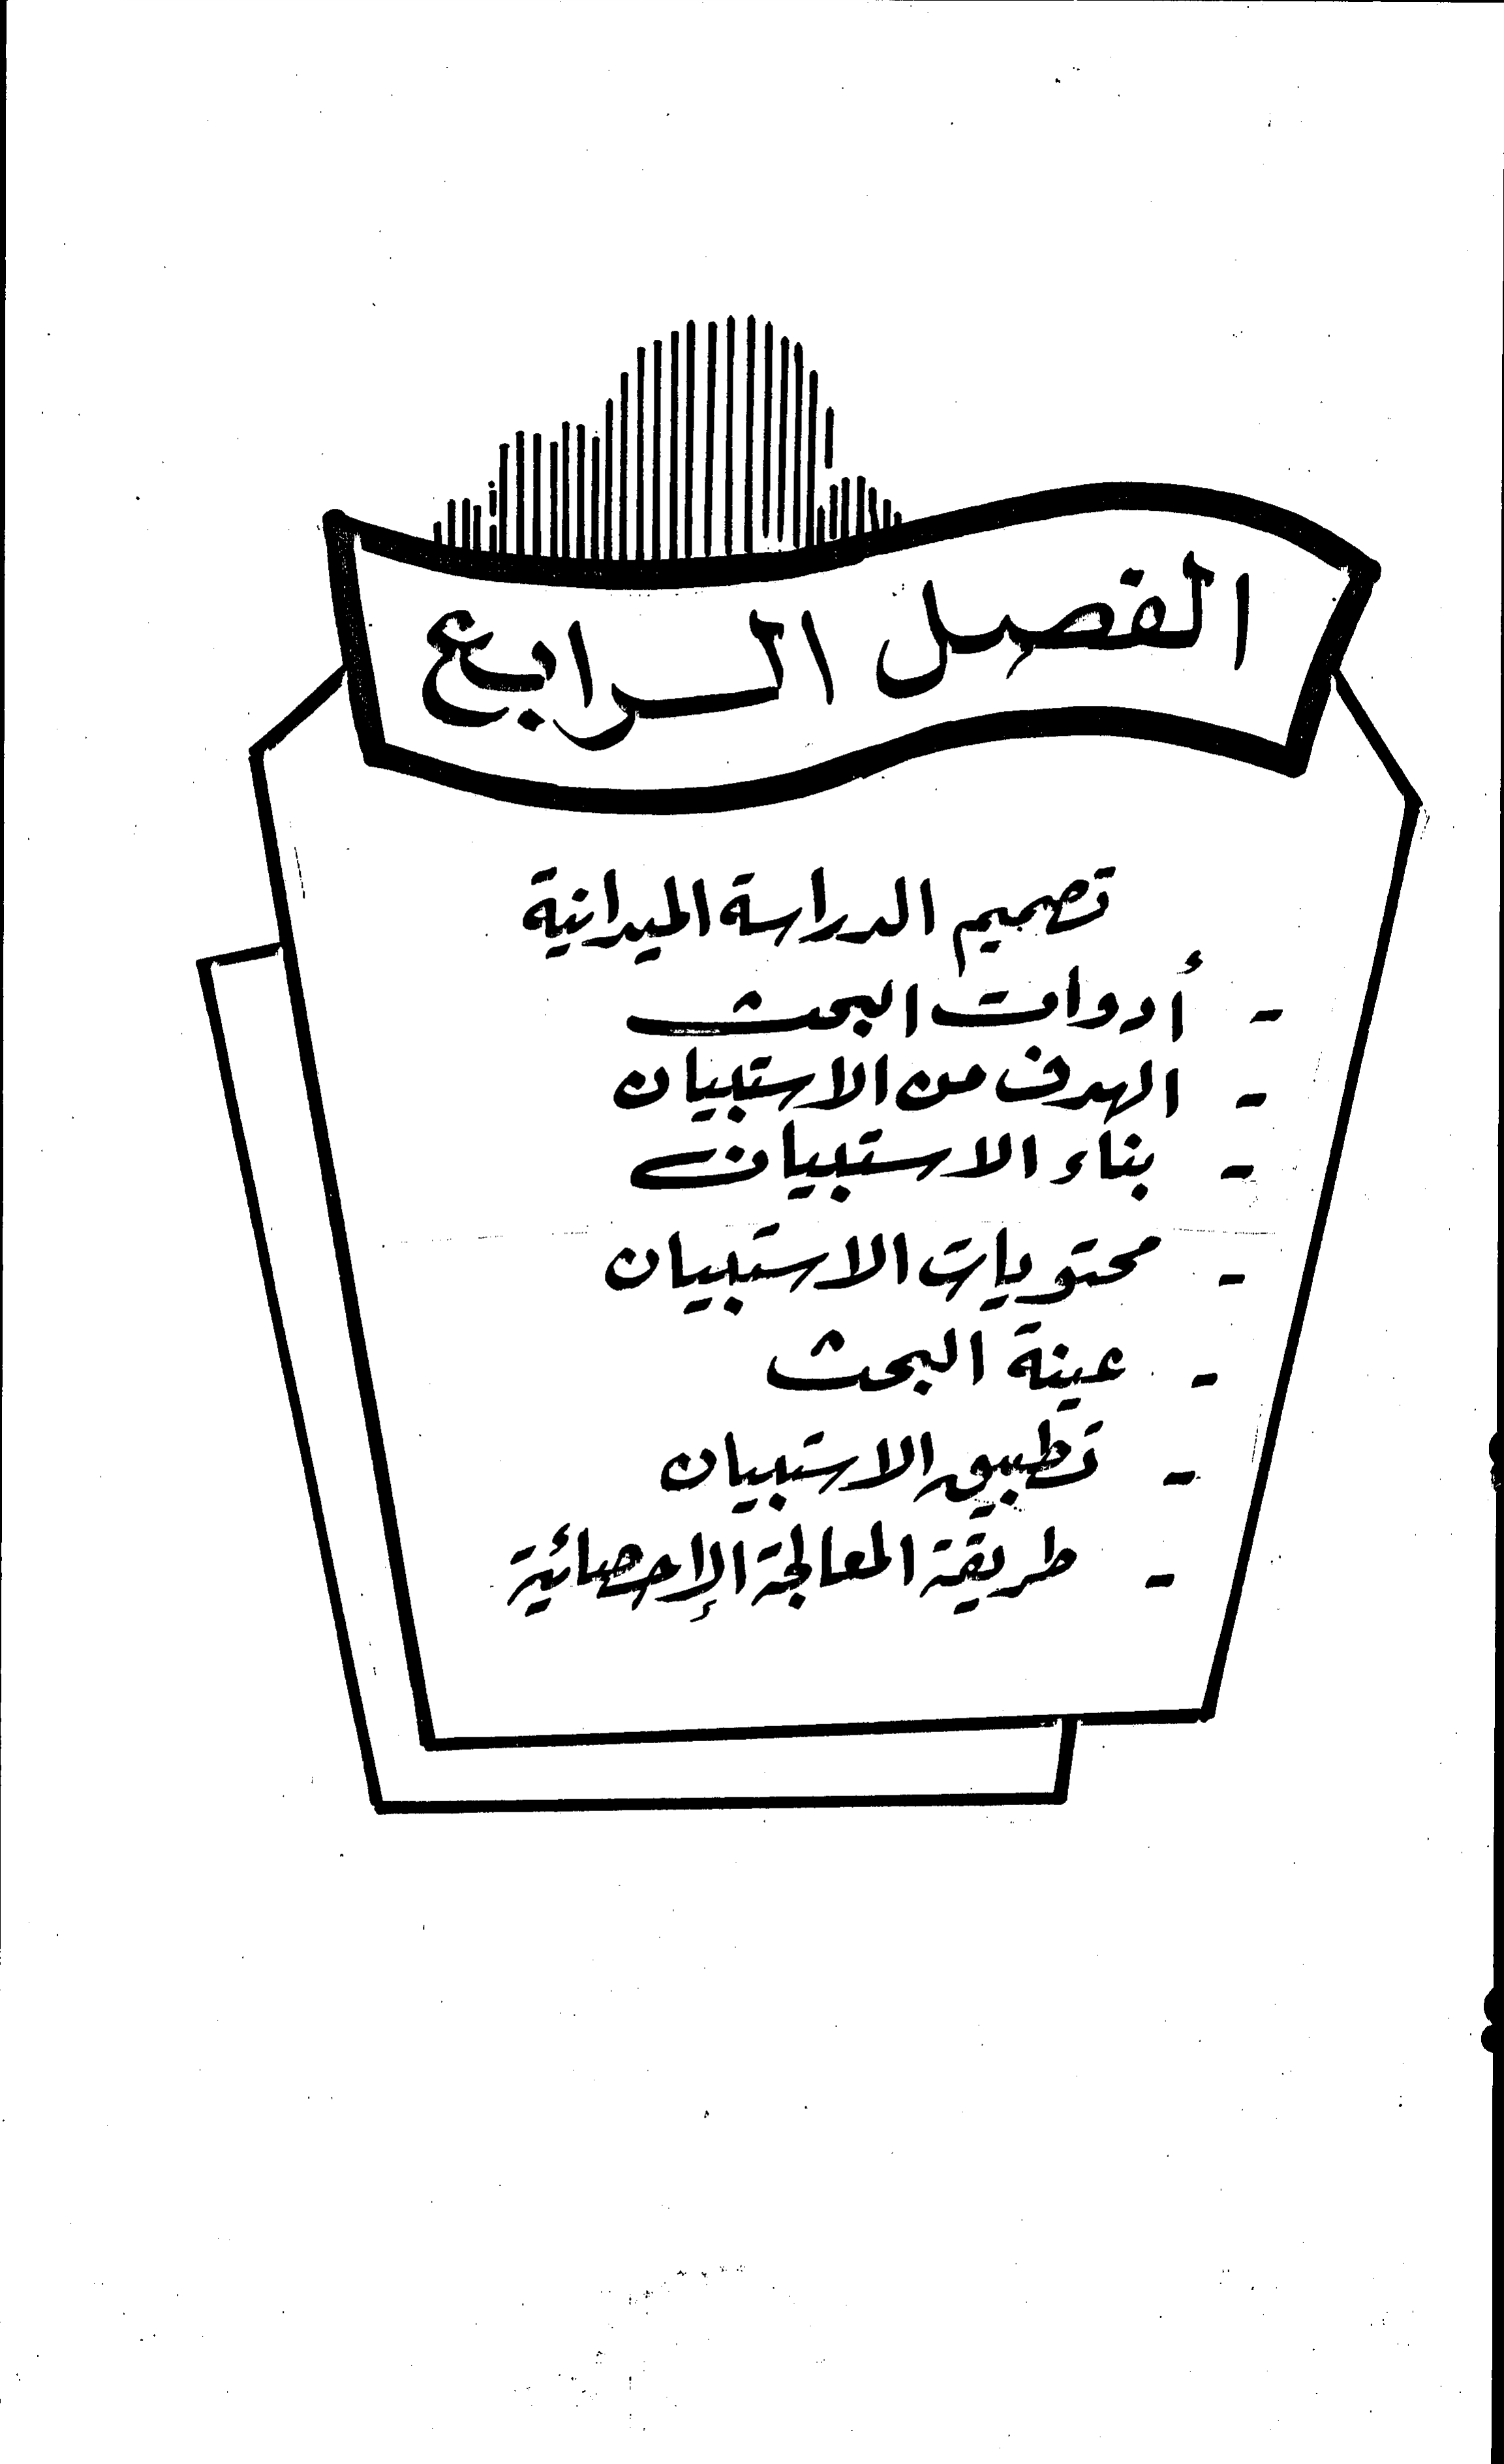 الفصل الرابع
تصميم الدراسة الميدانية
- أدوات البحث
- الهدف من الاستبيان
- بناء الاستبيان
- محتويات الاستبيان
- عينة البحث
- تطبيق الاستبيان
- طريقة المعالجة الإحصائية